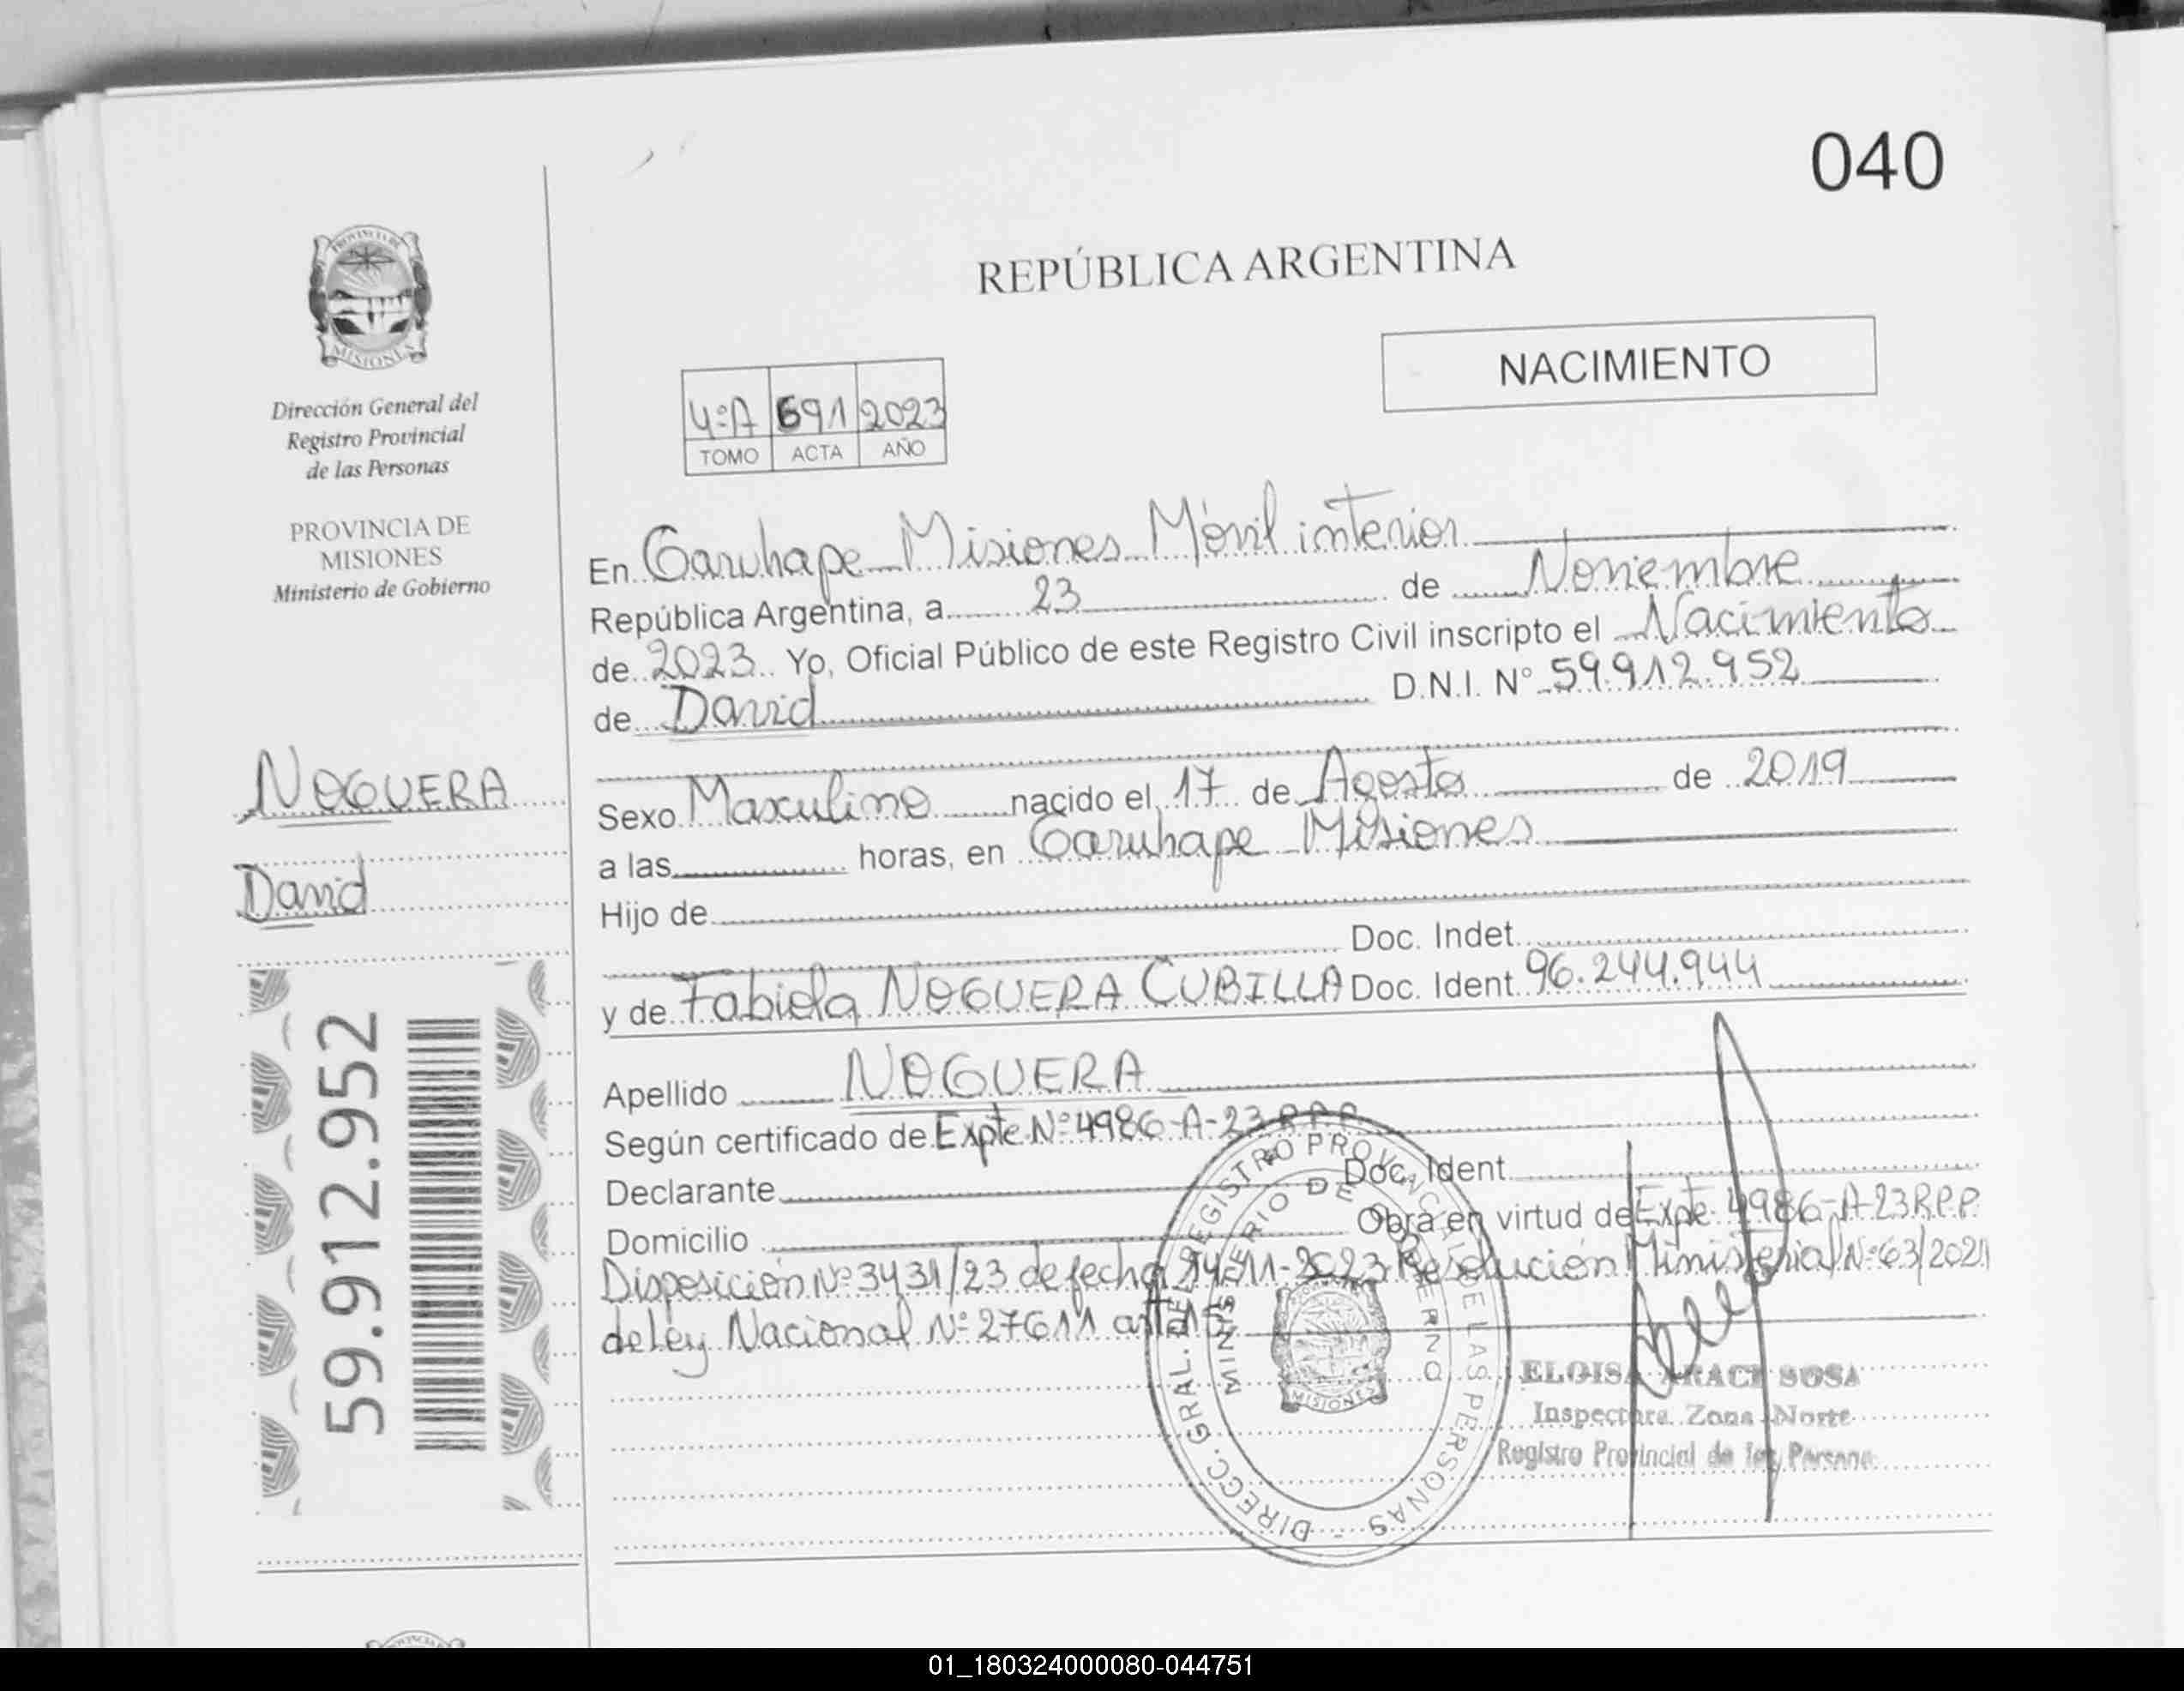 040
REPÚBLICA ARGENTINA
NACIMIENTO
PROVINCIA DE
MISIONES
Dirección General del
Registro Provincial
de las Personas
PROVINCIA DE
MISIONES
Ministerio de Gobierno
NOGUERA
David
59.912.952
4ºA 691 2023
TOMO ACTA AÑO
En Garuhape Misiones Móvil interior
República Argentina, a 23 de Noviembre
de 2023 Yo, Oficial Público de este Registro Civil inscripto el Nacimiento
de David D.N.I. Nº 59.912.952
Sexo Masculino nacido el 17 de Agosto de 2019
a las horas, en Garuhape Misiones
Hijo de
Doc. Indet.
y de Fabiola NOGUERA CUBILLA Doc. Ident. 96.244.944
Apellido NOGUERA
Según certificado de Expte Nº 4986-A-23 R.P.P.
Declarante Doc. Ident.
Domicilio Obra en virtud de Expte 4986-A-23 R.P.P.
Disposición Nº 3431/23 de fecha 14-11-2023 Resolución Ministerial Nº 63/2021
de Ley Nacional Nº 27611 art
DIRECC. GRAL. DEL REGISTRO PROVINCIAL DE LAS PERSONAS
MINISTERIO DE GOBIERNO
MISIONES
ELOISA ARACI SOSA
Inspectora Zona Norte
Registro Provincial de las Personas
01_180324000080-044751